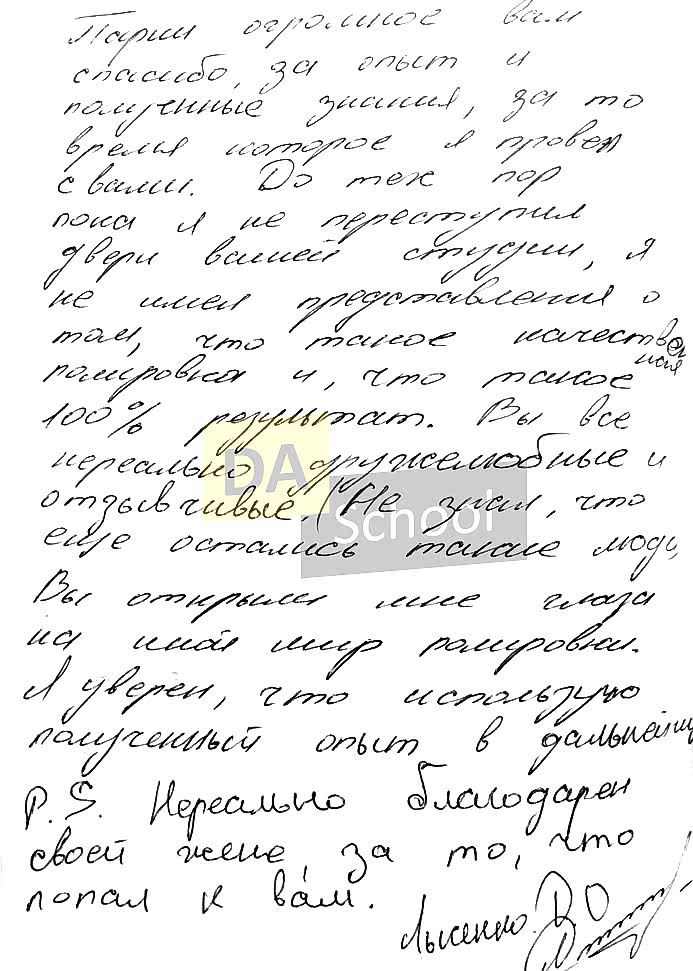 Парни огромное вам
спасибо, за опыт и
полученные знания, за то
время которое я провел
с вами. До тех пор
пока я не переступил
двери вашей студии, я
не имел представления о
том, что такое качествен
ная
полировка и, что такое
100% результат. Вы все
нереально дружелюбные и
отзывчивые. (Не знал, что
еще остались такие люди,
Вы открыли мне глаза
на иной мир полировки.
Я уверен, что использую
полученный опыт в дальнейшем
P.S. Нереально благодарен
своей жене, за то, что
попал к вам.
Лысенко В.О
DA
School